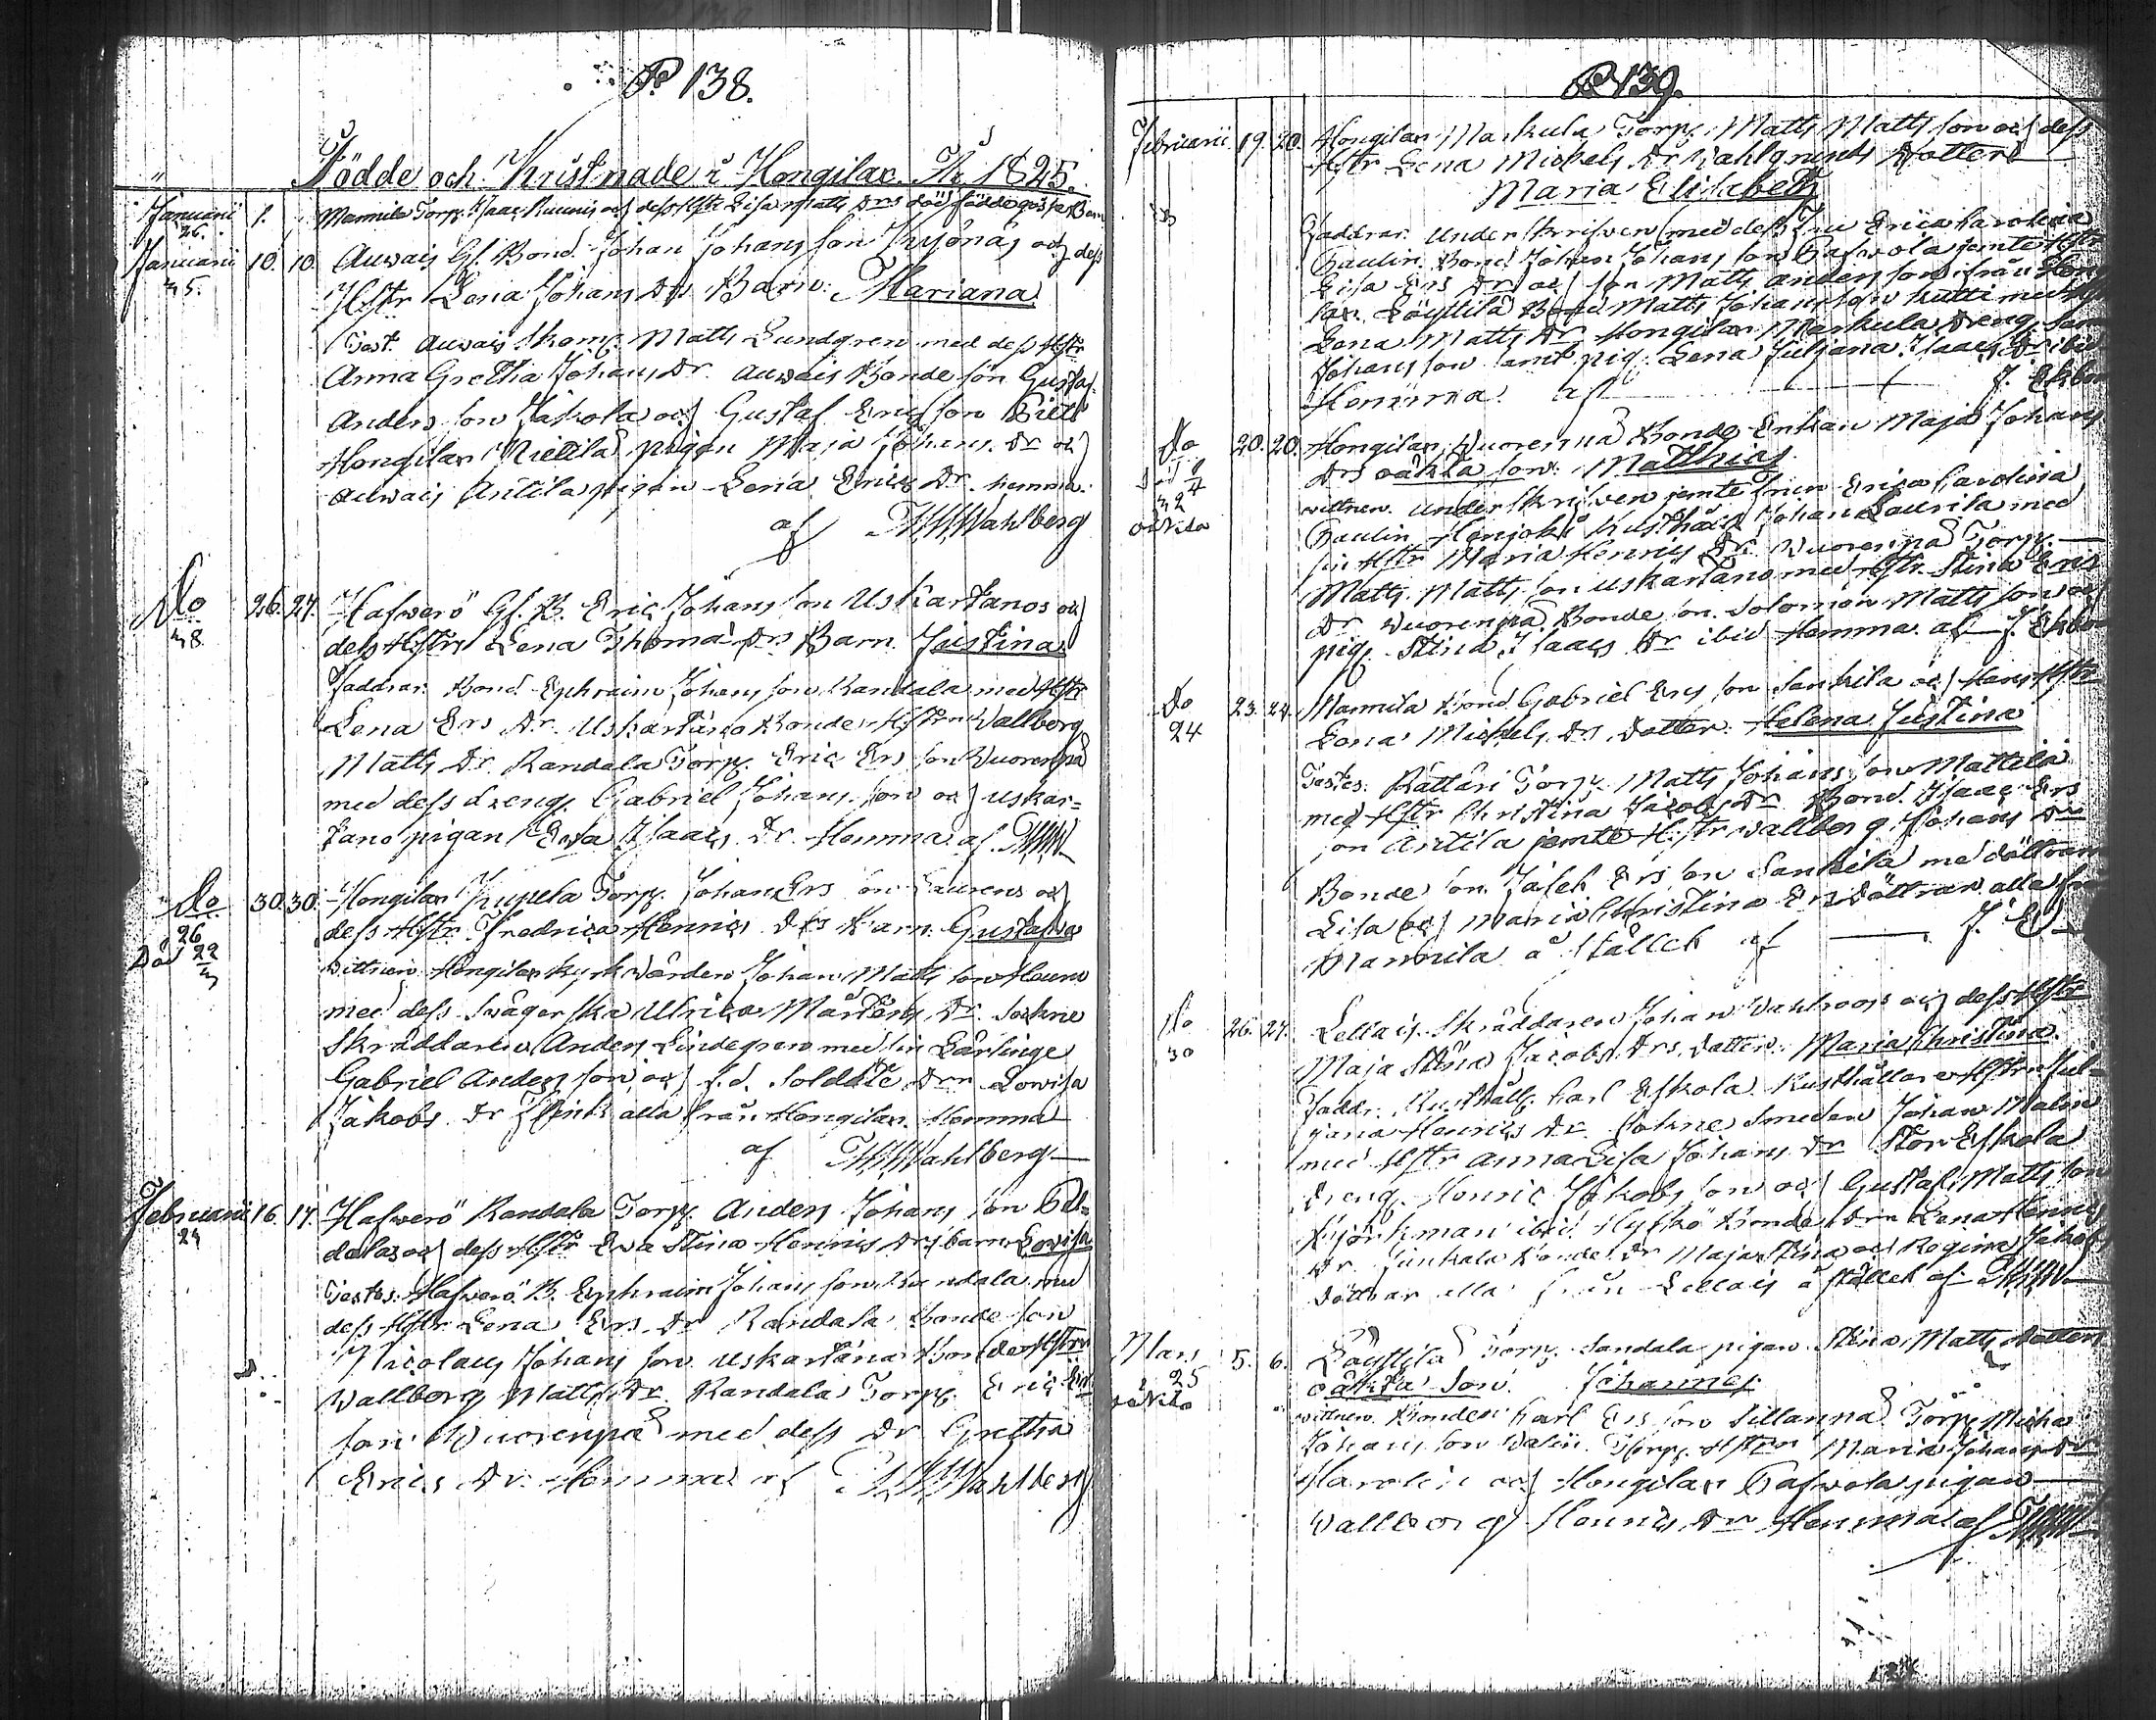 P. 138.
Födde och Kristnade i Hongilax År 1825.
Januarii 26. 1. Mannila Torp. Isaac och dess Hstr Lisa Matts Drs död födde gosse Barn
Januarii 25. 10. 10. Auvais Gl. Bond. Johan Johans son Kyönäs och dess
Hstr Lena Johans Drs Barn: Mariana
Test. Auvais Skom. Matts Lundgren med dess Hstr
Anna Gretha Johans Dr. Auvais Bonde son Gustaf
Anders son Jakola och Gustaf Erics son
Hongilax Mietila pigan Maja Johans Dr och
Auvais Antila pigan Lena Erics Dr. hemma.
af Wahlberg
Do 28. 26. 27. Hafverö Gl. B. Eric Johans son Uskartanos och
dess Hstrs Lena Thoma Drs Barn Justina
Faddrar: Bond. Ephraim Johans son Randala med Hstr
Lena Ers Dr. Uskartano Bonde Hstrn Wallborg
Matts Dr. Randala Torp. Eric Ers son Vuorenpä
med dess dreng. Gabriel Johans son och uskar=
tano pigan Eva Isaacs Dr. Hemma af
Do 26 30. 30. Hongilax Torp. Johan Ers son Laurens och
Död 22
dess Hstr Fredrica Henrics Drs Barn. Gustafva
Vittnen. Hongilax kyrkvärden Johan Matts son
med dess Svägerska Ulrica Mårtens Dr. Sockne
Skräddaren Anders Lindegren med sin Lärlinge
Gabriel Anders son och f.d. Soldate Drn Lovisa
Jakobs Dr Flink alla från Hongilax. Hemma
af Wahlberg
Februarii 24 16. 17. Hafverö Randala Torp. Anders Johans son
och dess Hstr Eva Stina Henrics Drs barn Lovisa
Testes. Hafverö B. Ephraim Johans son Randala med
dess Hstr Lena Ers Dr Randala Bonde son
Nicolaus Johans son uskartano Bonde Hstrn
Wallborg Matts Dr. Randala Torp. Eric Ers
son Vuorenpä med dess Dr Gretha
Erics Dr. Hemma af Wahlberg
P. 139.
Februarii 19. 20. Hongilax Markula Torp. Matts Matts son och dess
Hstr Lena Michels Dr Wahlgrens Dotter
Maria Elisabeth
Faddrar. Underskrifven med dess Fru Erica Carolina
Paulin. Bond Johan Johans son Pafvola jemte Hstr
Lisa Ers Dr och son Matts Anders son ifrån Hon
lax. Löyttilä Bond Matts Johans son Kutti med
Lena Matts Dr Hongilax Markula Dreng.
Johans son samt pig. Lena Juliana Isaacs Dr ibid
Hemma af J. Ekbom
Do 20. 20. Hongilax Vuorenpä Bonde Enkan Maja Johans
Drs oäkta son: Matthias
Vittnen. Underskrifven jemte Frun Erica Carolina
Paulin Johan Laurila med
sin Hstr Maria Henrics Dr. Vuorenpä Torp.
Matts Matts son uskartano med Hstr Stina Erics
Dr Vuorenpä Bonde son Solomon Matts son och
pig. Stina Isaacs Dr ibid Hemma af J. Ekbom
Do 24 23. 24. Mannila Bond Gabriel Ers son Sankila och Hans Hstr
Lena Michels Drs Dotter. Helena Justina
Testes. Rättari Torp. Matts Johans son Mattila
med Hstr Christina Jacobs Dr Bond. Isaac Ers
son Antila jemte Hstr Wallborg Johans Dr
Bonde son Josef Ers son Sankila med döttrar
Lisa och Maria Christina Ers döttrar alla från
Mannila å Stället af J. E
Do 30 26. 27. Lellais Skräddaren Johan Wahlroos och dess Hstr
Maja Stina Jacobs Drs Dotter. Maria Christina
Faddr. Rusthåll. Carl Eskola Rusthållare Hstrn Jul=
jana Henrics Dr. Sockne Smeden Johan Malin
med Hstr Anna Lisa Johans Dr Stor Eskola
Dreng. Henric Jakobs son och Gustaf Matts son
Björkman ibid. Hyfkö Bonde Drn Lena Henrics
Dr. Junkala Bonde Dr Maja Stina och Regina Jakobs
döttrar alla från Lellais å Stället af
Mars 25 5. 6. Löyttilä Torp. Sandala pigan Stina Matts dotters
oäkta son. Johannes
Vittnen. Bonden Carl Ers son Sillanpä Torp. Michel
Johans son Torp. Hstrn Maria Johans Dr
och Hongilax Pafvola pigan
Wallborg Henrics Dr Hemma af